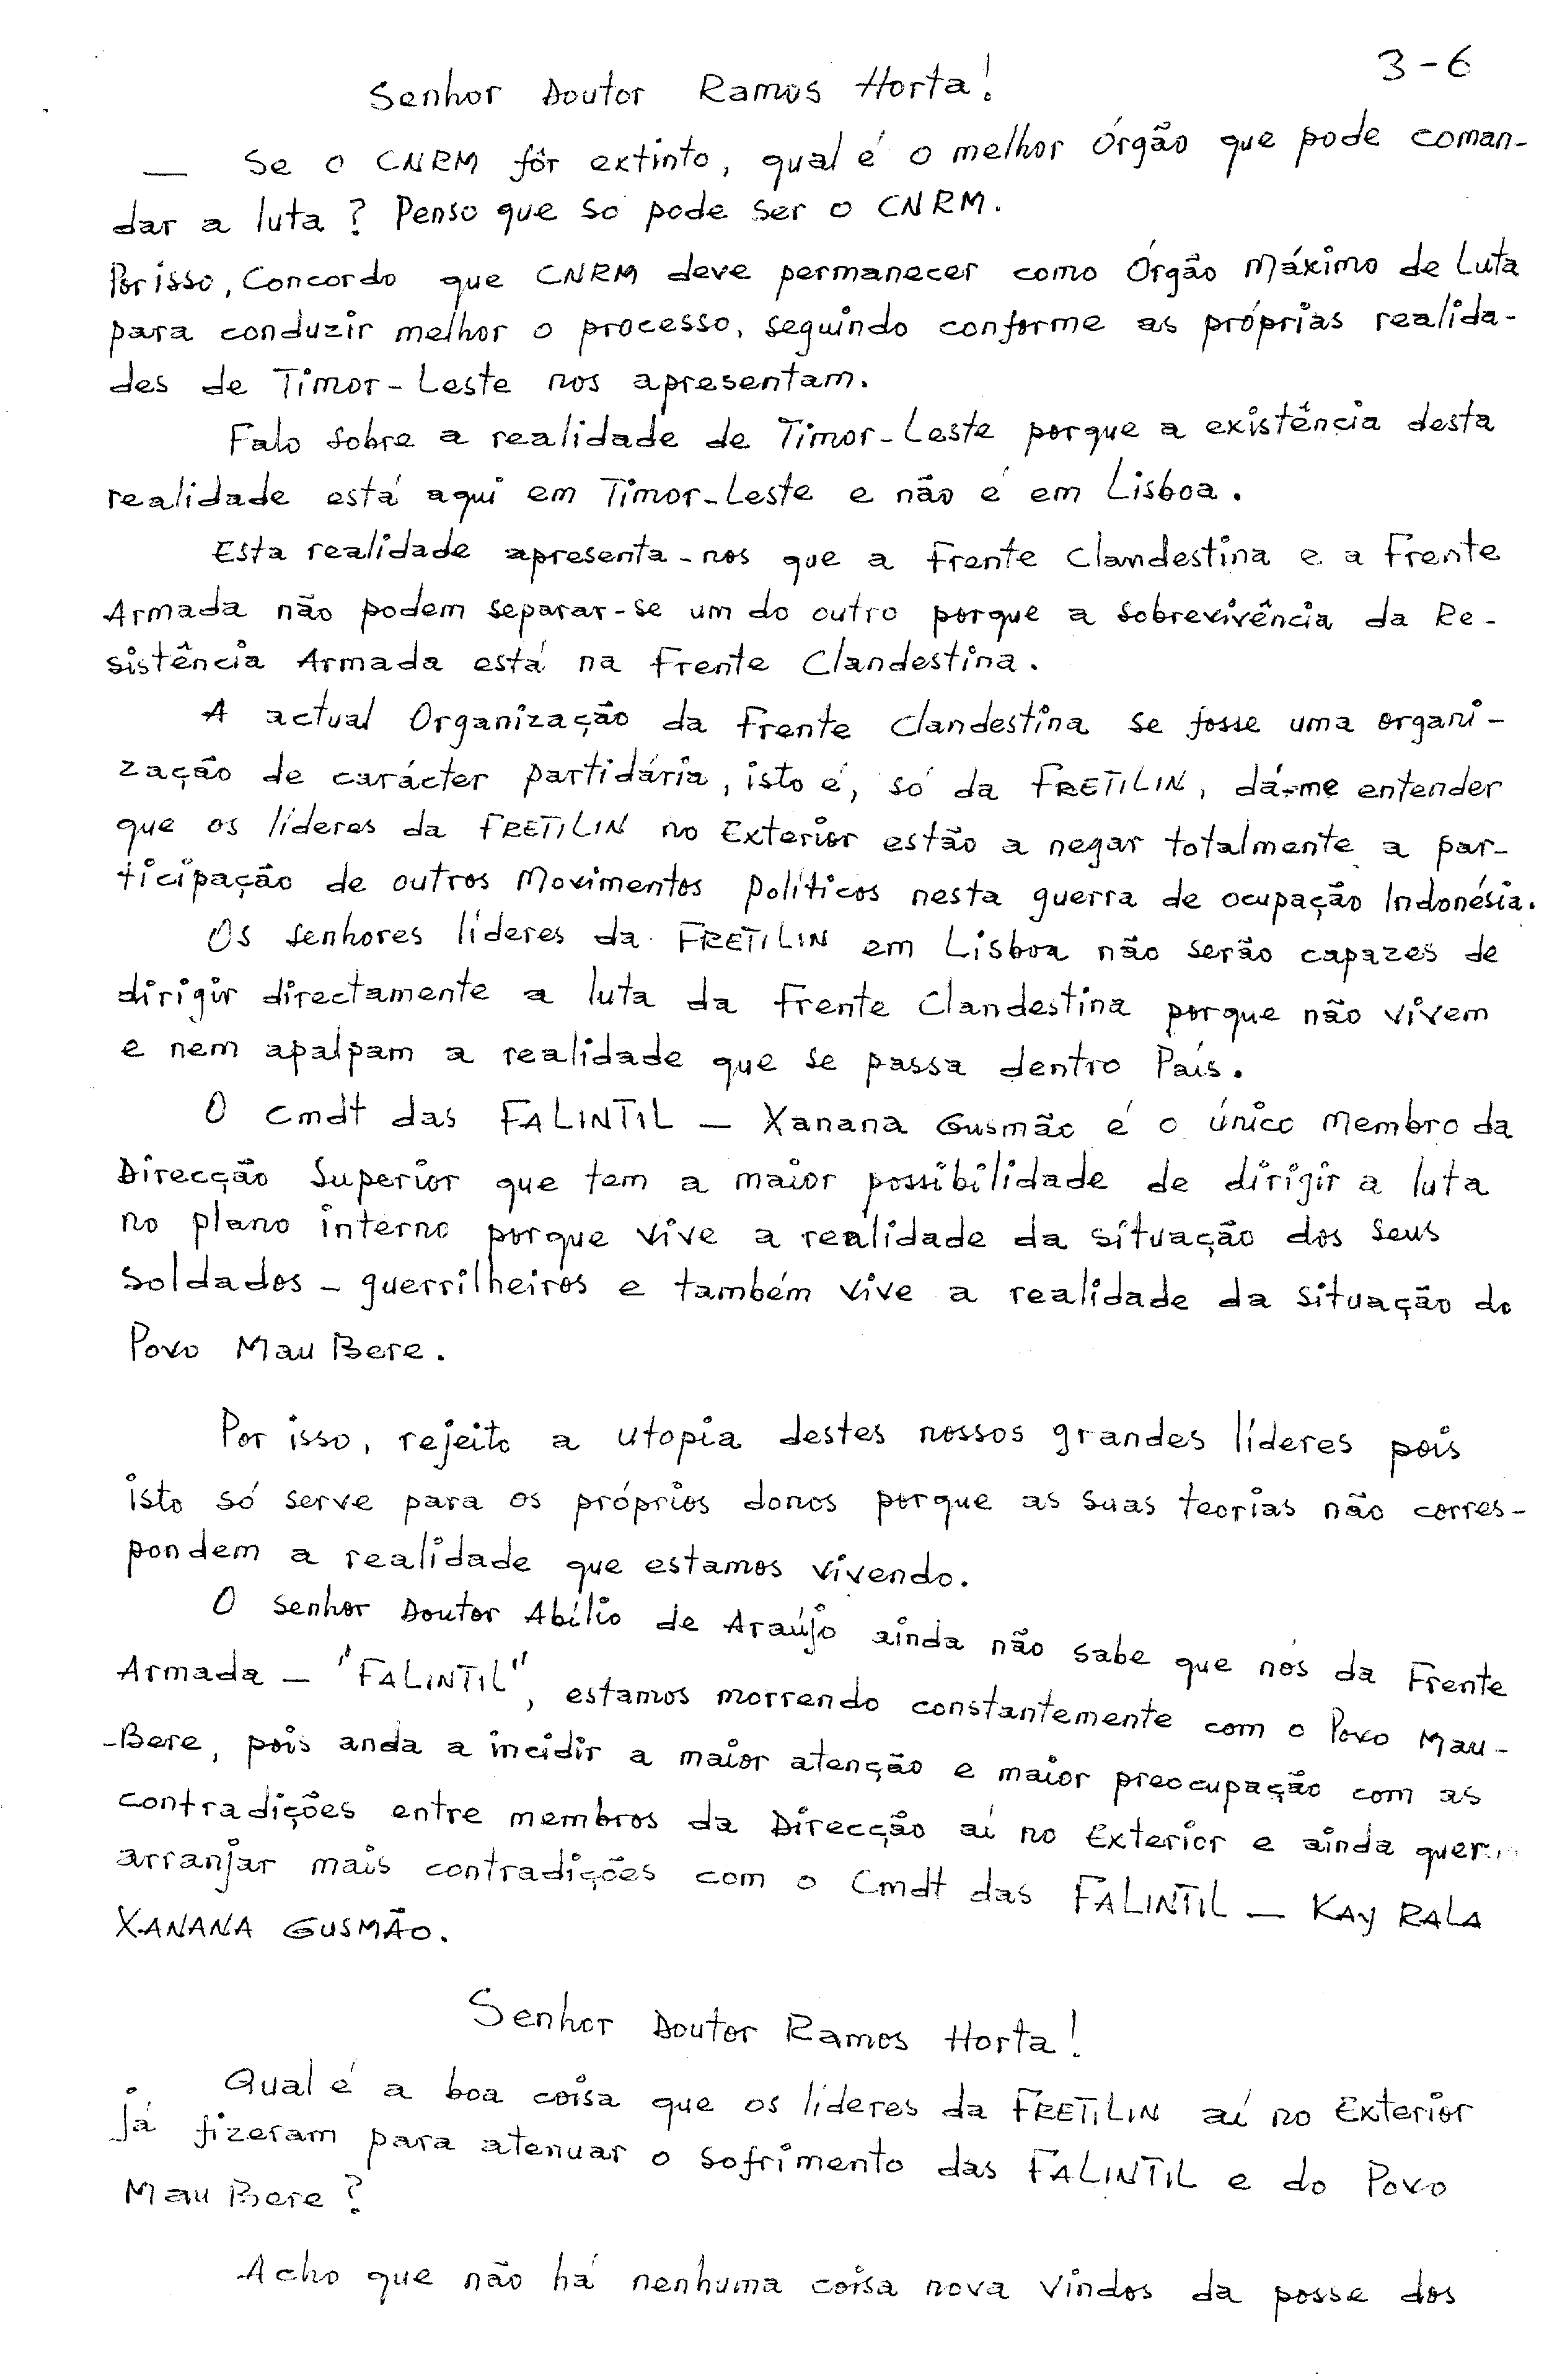 3-6
Senhor Doutor Ramos Horta!
— Se o CNRM fôr extinto, qual é o melhor Órgão que pode coman-
dar a luta? Penso que só pode ser o CNRM.
Porisso, Concordo que CNRM deve permanecer como Órgão Máximo de Luta
para conduzir melhor o processo, seguindo conforme as próprias realida-
des de Timor-Leste nos apresentam.
Falo sobre a realidade de Timor-Leste porque a existência desta
realidade está aqui em Timor-Leste e não é em Lisboa.
Esta realidade apresenta-nos que a Frente Clandestina e a Frente
Armada não podem separar-se um do outro porque a sobrevivência da Re-
sistência Armada está na Frente Clandestina.
A actual Organização da Frente Clandestina se fosse uma organi-
zação de carácter partidária, isto é, só da FRETILIN, dá-me entender
que os líderes da FRETILIN no Exterior estão a negar totalmente a par-
ticipação de outros Movimentos Políticos nesta guerra de ocupação Indonésia.
Os senhores líderes da FRETILIN em Lisboa não serão capazes de
dirigir directamente a luta da Frente Clandestina porque não vivem
e nem apalpam a realidade que se passa dentro País.
O Cmdt das FALINTIL — Xanana Gusmão é o único Membro da
Direcção Superior que tem a maior possibilidade de dirigir a luta
no plano interno porque vive a realidade da situação dos seus
soldados - guerrilheiros e também vive a realidade da situação do
Povo Mau Bere.
Por isso, rejeito a utopia destes nossos grandes líderes pois
isto só serve para os próprios donos porque as suas teorias não corres-
pondem a realidade que estamos vivendo.
O senhor Doutor Abílio de Araújo ainda não sabe que nós da Frente
Armada — "FALINTIL", estamos morrendo constantemente com o Povo Mau-
-Bere, pois anda a incidir a maior atenção e maior preocupação com as
contradições entre membros da Direcção aí no Exterior e ainda quer
arranjar mais contradições com o Cmdt das FALINTIL — KAY RALA
XANANA GUSMÃO.
Senhor Doutor Ramos Horta!
Qual é a boa coisa que os líderes da FRETILIN aí no Exterior
já fizeram para atenuar o sofrimento das FALINTIL e do Povo
Mau Bere?
Acho que não há nenhuma coisa nova vindos da posse dos